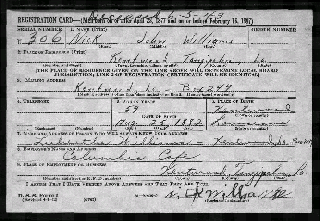 REGISTRATION CARD—(Men born on or after April 28, 1877 and on or before February 16, 1897)
SERIAL NUMBER 1. NAME (Print) ORDER NUMBER
U 306 Nick John Williams
2. PLACE OF RESIDENCE (Print)
Kentwood Tangipahoa La.
(THE PLACE OF RESIDENCE GIVEN ON THE LINE ABOVE WILL DETERMINE LOCAL BOARD
JURISDICTION; LINE 2 OF REGISTRATION CERTIFICATE WILL BE IDENTICAL)
3. MAILING ADDRESS
Kentwood La - Box 277
4. TELEPHONE 5. AGE IN YEARS 6. PLACE OF BIRTH
59
DATE OF BIRTH
Louisiana
7. NAME AND ADDRESS OF PERSON WHO WILL ALWAYS KNOW YOUR ADDRESS
Williams - Kentwood, La.
8. EMPLOYER'S NAME AND ADDRESS
Columbia Cafe
9. PLACE OF EMPLOYMENT OR BUSINESS
Kentwood Tangipahoa La
I AFFIRM THAT I HAVE VERIFIED ABOVE ANSWERS AND THAT THEY ARE TRUE.
D. S. S. Form 1
(Revised 4-1-42)